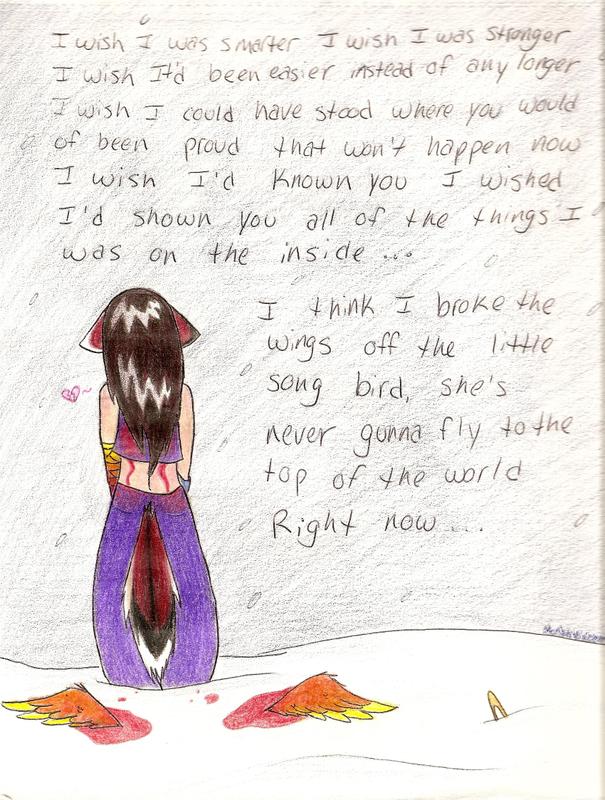 I wish I was smarter I wish I was stronger
I wish It'd been easier instead of any longer
I wish I could have stood where you would
of been proud that won't happen now
I wish I'd known you I wished
I'd shown you all of the things I
was on the inside ...
I think I broke the
wings off the little
song bird, she's
never gunna fly to the
top of the world
Right now ...